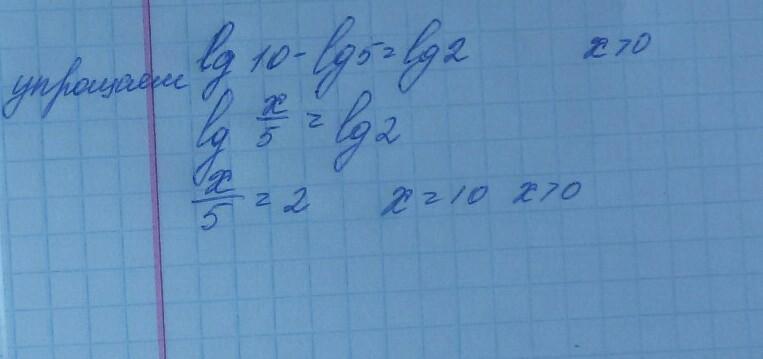 упрощаем lg 10 - lg 5 = lg 2 x>0
lg x/5 = lg 2
x/5 = 2 x = 10 x>0